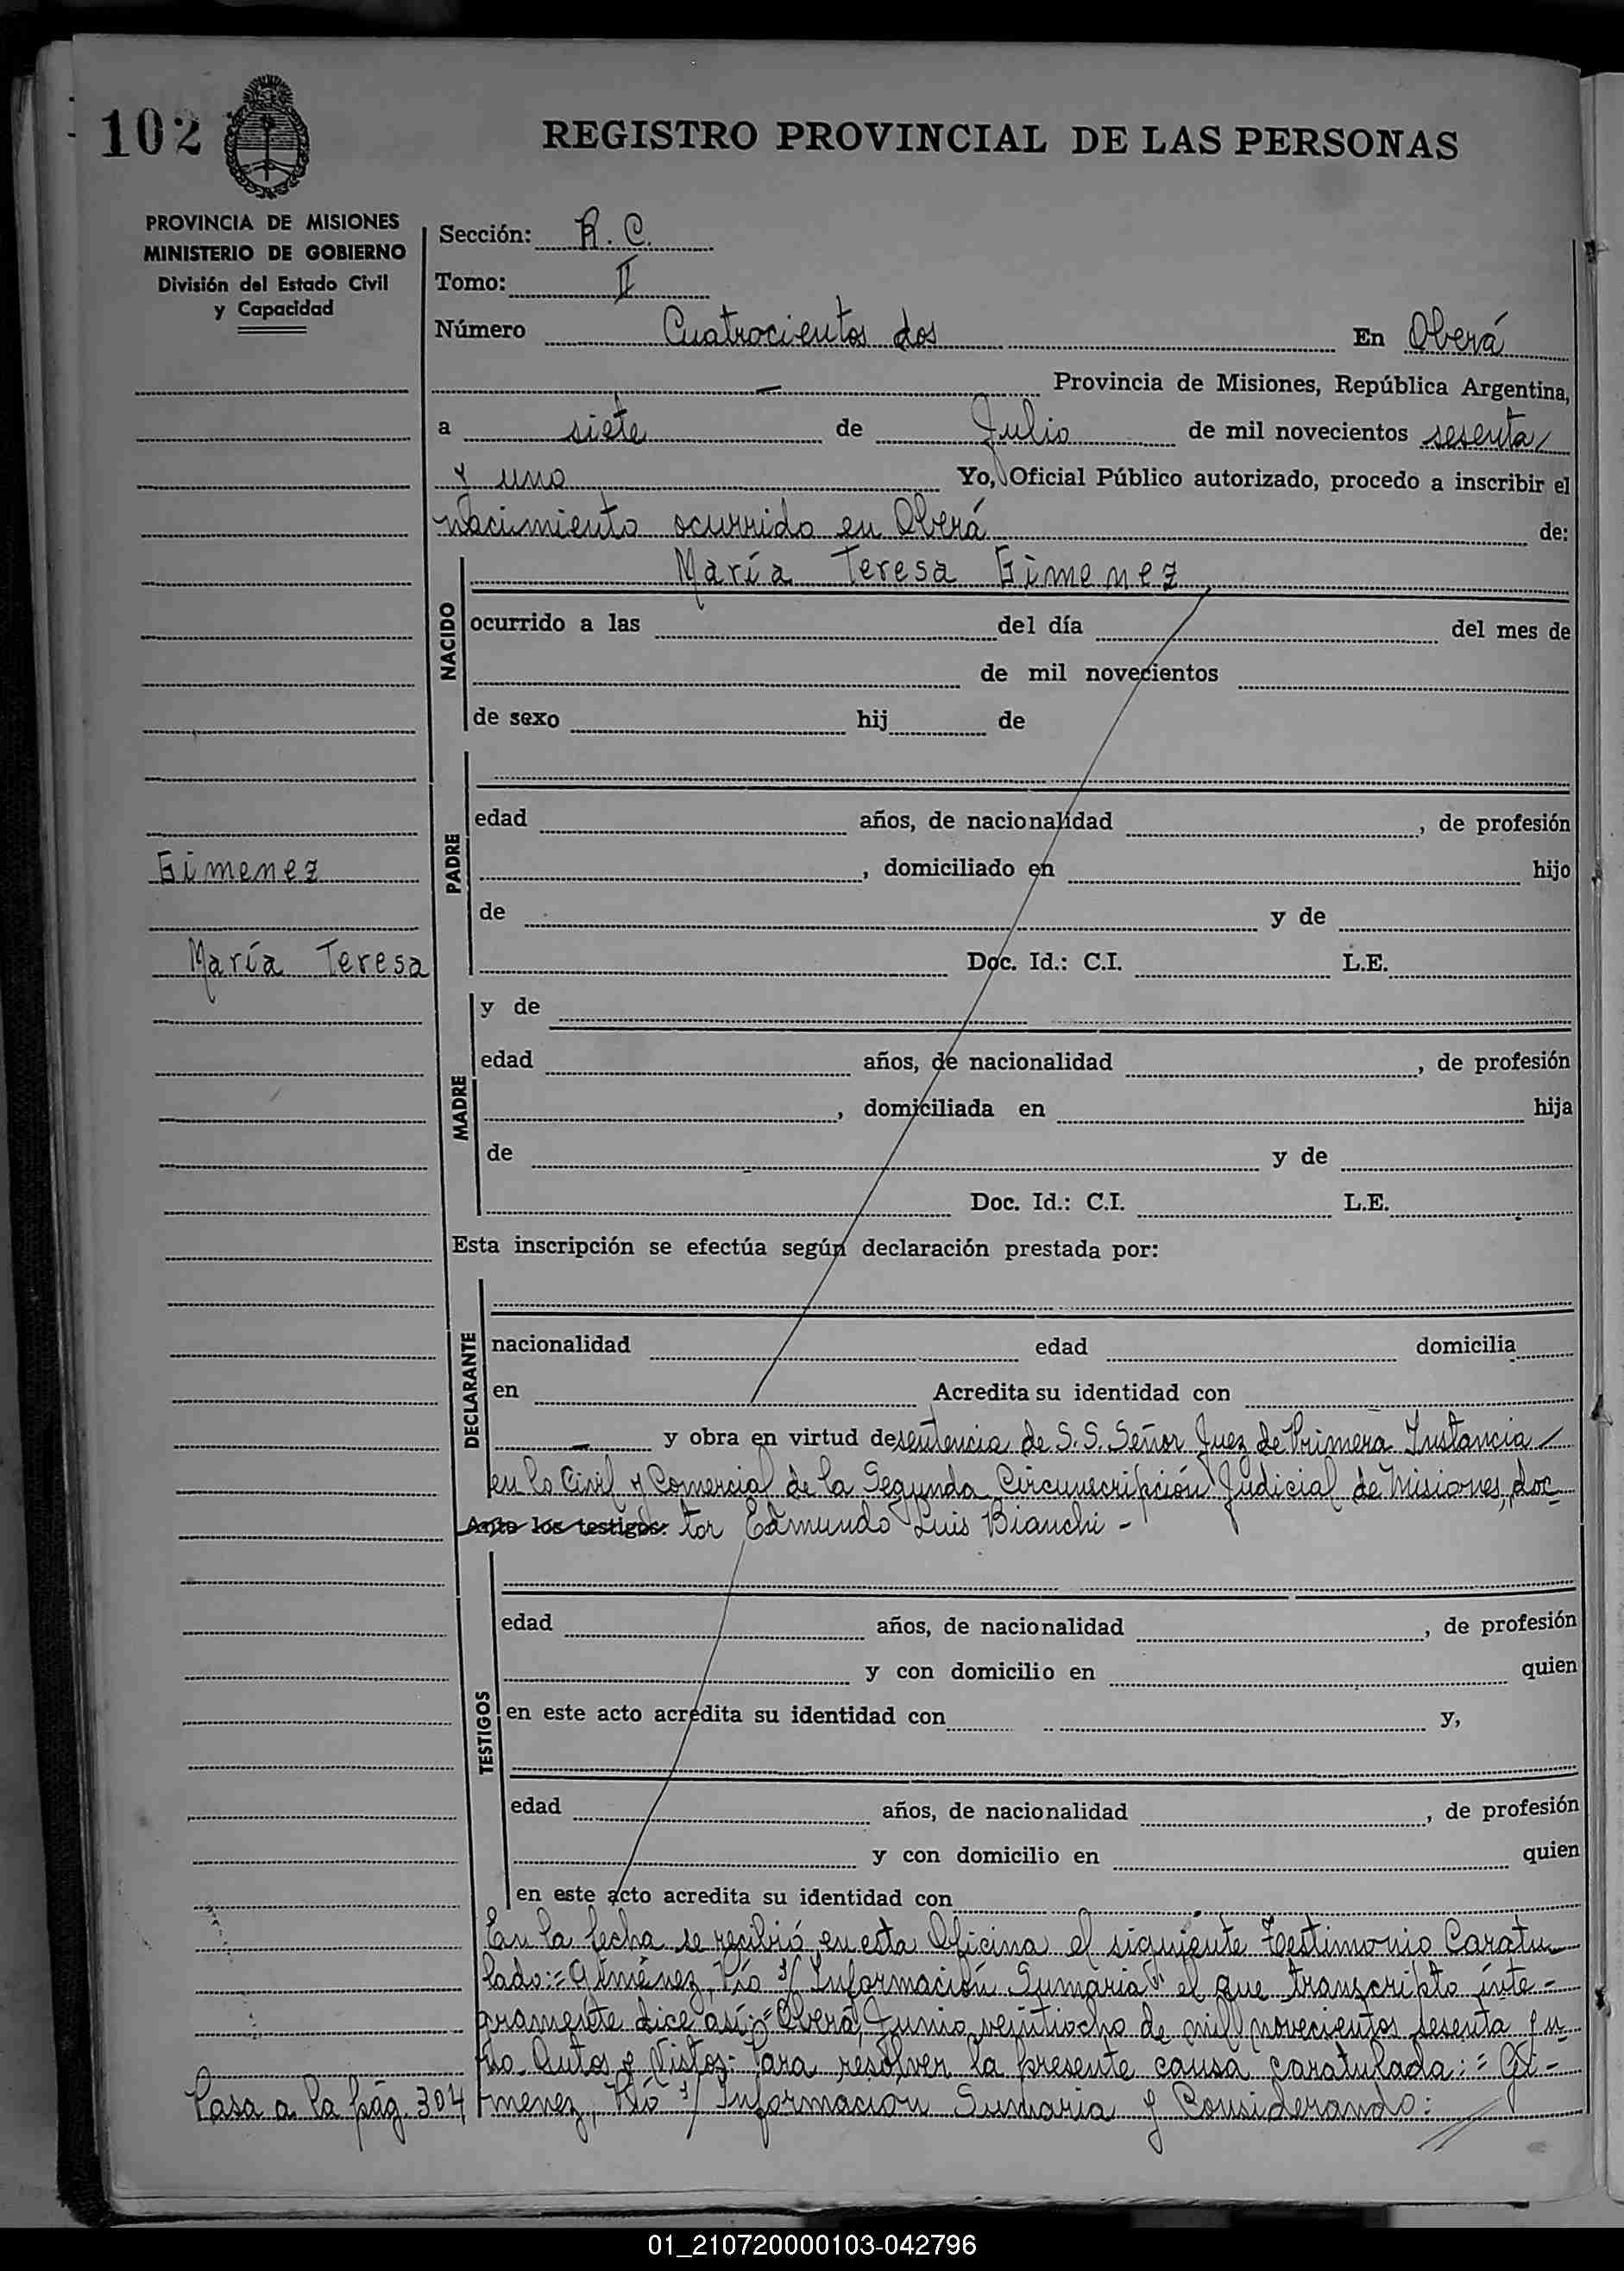 102
REGISTRO PROVINCIAL DE LAS PERSONAS
PROVINCIA DE MISIONES
MINISTERIO DE GOBIERNO
División del Estado Civil
y Capacidad
Sección: R. C.
Tomo: II
Número Cuatrocientos dos En Oberá
Provincia de Misiones, República Argentina,
a siete de Julio de mil novecientos sesenta
y uno Yo, Oficial Público autorizado, procedo a inscribir el
nacimiento ocurrido en Oberá de:
María Teresa Gimenez
NACIDO
ocurrido a las del día del mes de
de mil novecientos
de sexo hij de
PADRE
edad años, de nacionalidad , de profesión
Gimenez
, domiciliado en hijo
de y de
María Teresa
Doc. Id.: C.I. L.E.
MADRE
y de
edad años, de nacionalidad , de profesión
, domiciliada en hija
de y de
Doc. Id.: C.I. L.E.
Esta inscripción se efectúa según declaración prestada por:
DECLARANTE
nacionalidad edad domicilia
en Acredita su identidad con
y obra en virtud de sentencia de S. S. Señor Juez de Primera Instancia
en lo Civil y Comercial de la Segunda Circunscripción Judicial de Misiones, doc-
Ante los testigos: tor Edmundo Luis Bianchi -
TESTIGOS
edad años, de nacionalidad , de profesión
y con domicilio en quien
en este acto acredita su identidad con y,
edad años, de nacionalidad , de profesión
y con domicilio en quien
en este acto acredita su identidad con
En la fecha se recibió en esta Oficina el siguiente Testimonio Caratu-
lado:= Giménez, Pío s/ Información Sumaria" el que transcripto inte-
gramente dice así:= Oberá, Junio veintiocho de mil novecientos sesenta y u-
no. Autos y Vistos: Para resolver la presente causa caratulada:= Gi-
menez, Pío s/ Información Sumaria y Considerando:
Pasa a la pág. 304
01_210720000103-042796